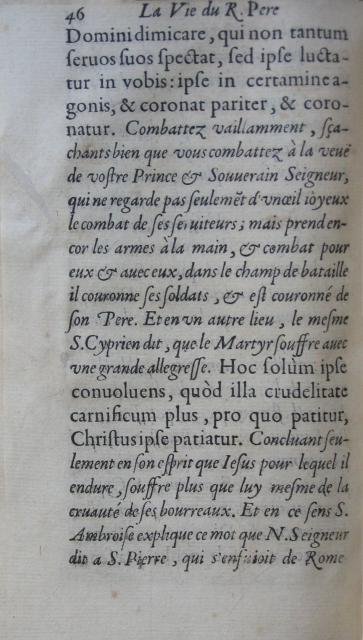 46 La Vie du R. Pere
Domini dimicare, qui non tantum
ſeruos ſuos ſpectat, ſed ipſe lucta-
tur in vobis: ipſe in certamine a-
gonis, & coronat pariter, & coro-
natur. Combattez vaillamment, ſça-
chants bien que vous combattez à la veuë
de voſtre Prince & Souuerain Seigneur,
qui ne regarde pas ſeulemẽt d'vn œil ioyeux
le combat de ſes ſeruiteurs; mais prend en-
cor les armes à la main, & combat pour
eux & auec eux, dans le champ de bataille
il couronne ſes ſoldats, & eſt couronné de
ſon Pere. Et en vn autre lieu, le meſme
S. Cyprien dit, que le Martyr ſouffre auec
vne grande allegreſſe. Hoc ſolùm ipſe
conuoluens, quòd illa crudelitate
carnificum plus, pro quo patitur,
Chriſtus ipſe patiatur. Concluant ſeu-
lement en ſon eſprit que Ieſus pour lequel il
endure, ſouffre plus que luy meſme de la
cruauté de ſes bourreaux. Et en ce ſens S.
Ambroiſe explique ce mot que N. Seigneur
dit a S. Pierre, qui s'enfuioit de Rome